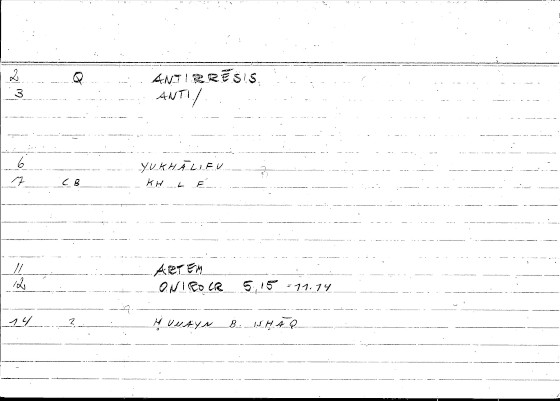 2 Q ANTIRRĒSIS
3 ANTI/
6 YUKHĀLIFU
7 CB KH L F
11 ARTEM
12 ONIROCR 5,15 - 11.14
14 2 ḤUNAYN B. ISḤĀQ